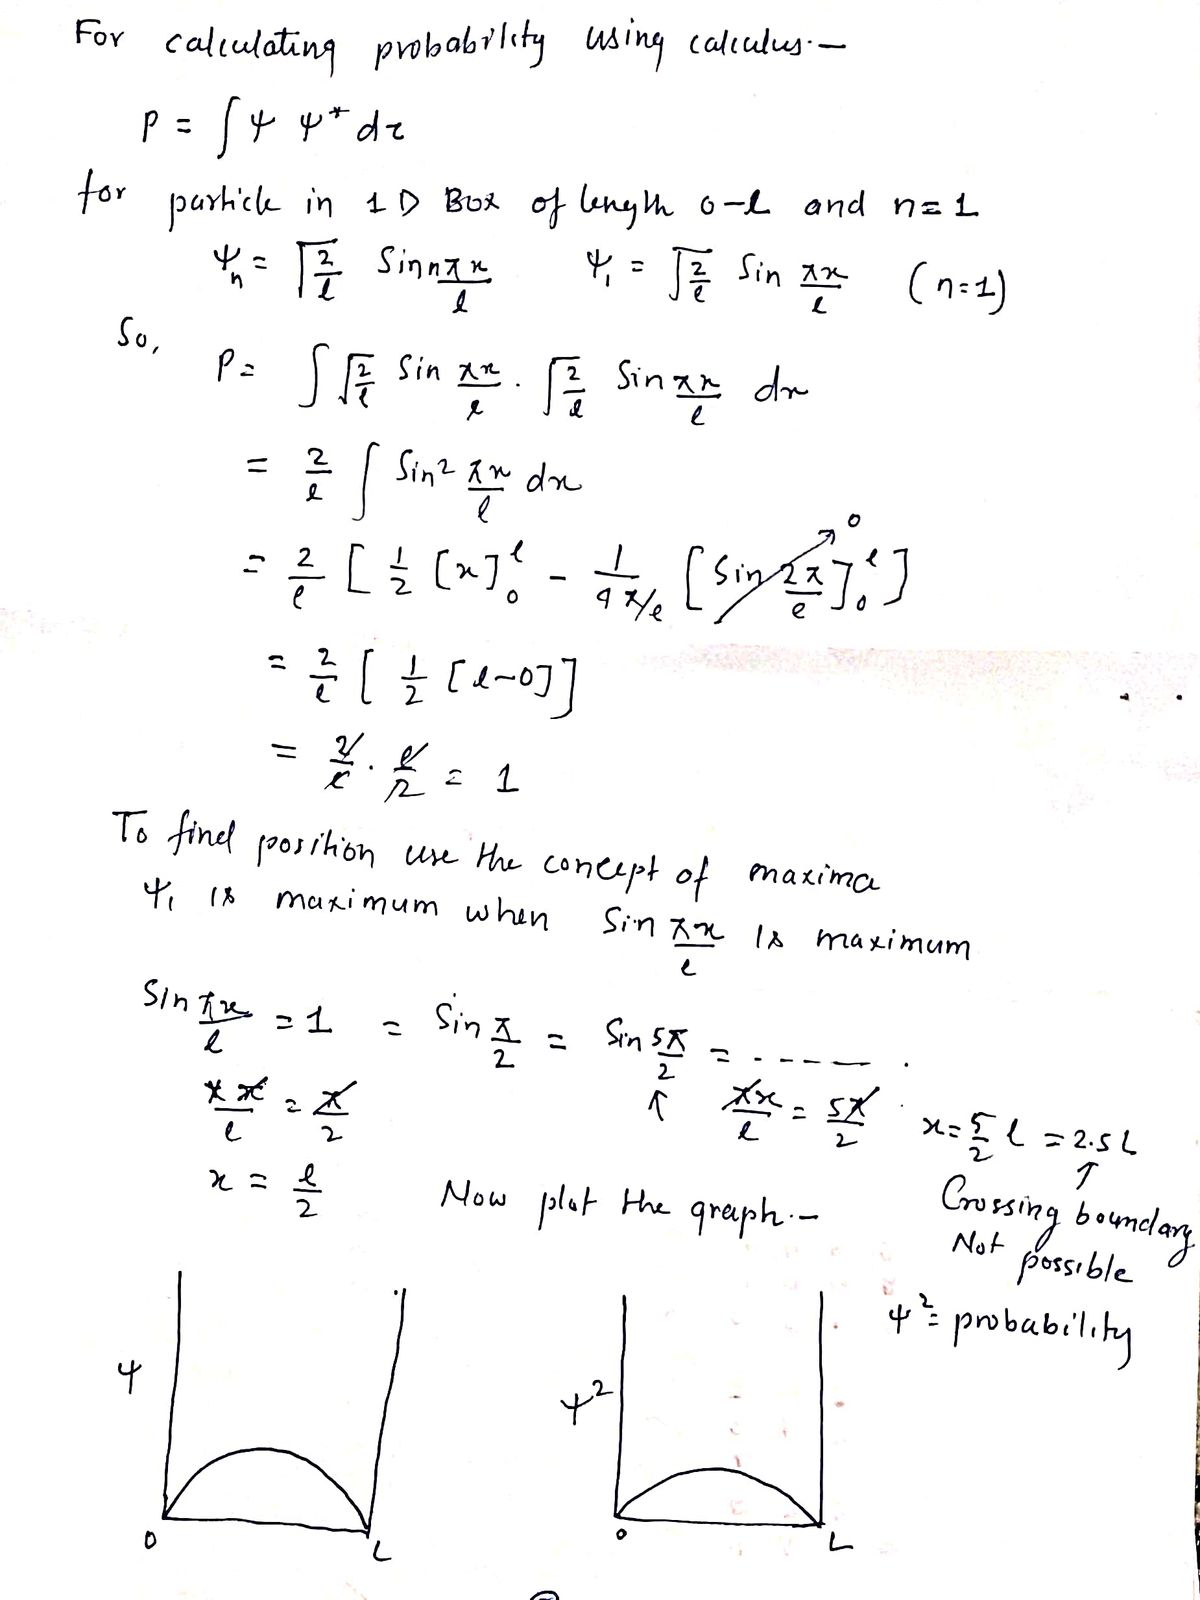 For calculating probability using calculus:-
P = ∫ ψ ψ* dτ
for particle in 1D Box of length 0-l and n=1
ψn = √2/l Sin nπx/l    ψ1 = √2/l Sin πx/l (n=1)
So, P = ∫ √2/l Sin πx/l . √2/l Sin πx/l dx
= 2/l ∫ Sin² πx/l dx
= 2/l [ 1/2 [x]₀ˡ - 1/4π/l [Sin 2π/l]₀ˡ ] 0
= 2/l [ 1/2 [l-0]]
= 2/l . l/2 = 1
To find position use the concept of maxima
ψ1 is maximum when Sin πx/l is maximum
Sin πx/l = 1 = Sin π/2 = Sin 5π/2 = ------ .
πx/l = π/2    ↑ πx/l = 5π/2    x = 5/2 l = 2.5L
x = l/2    Now plot the graph:-    ↑ Crossing boundary
Not possible
ψ² = probability
ψ    ψ²
0    L    0    L